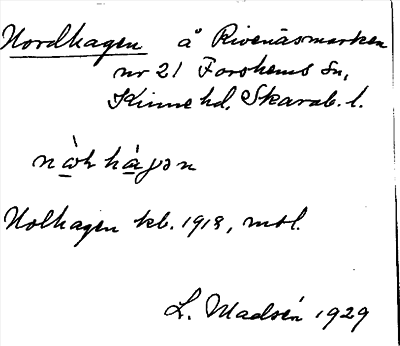 Nordhagen å Rivenäsmarken
nr 21 Forshems sn,
Kinne hd, Skarab. l.
Nolhagen kb. 1918, mtl.
L. Madsén 1929